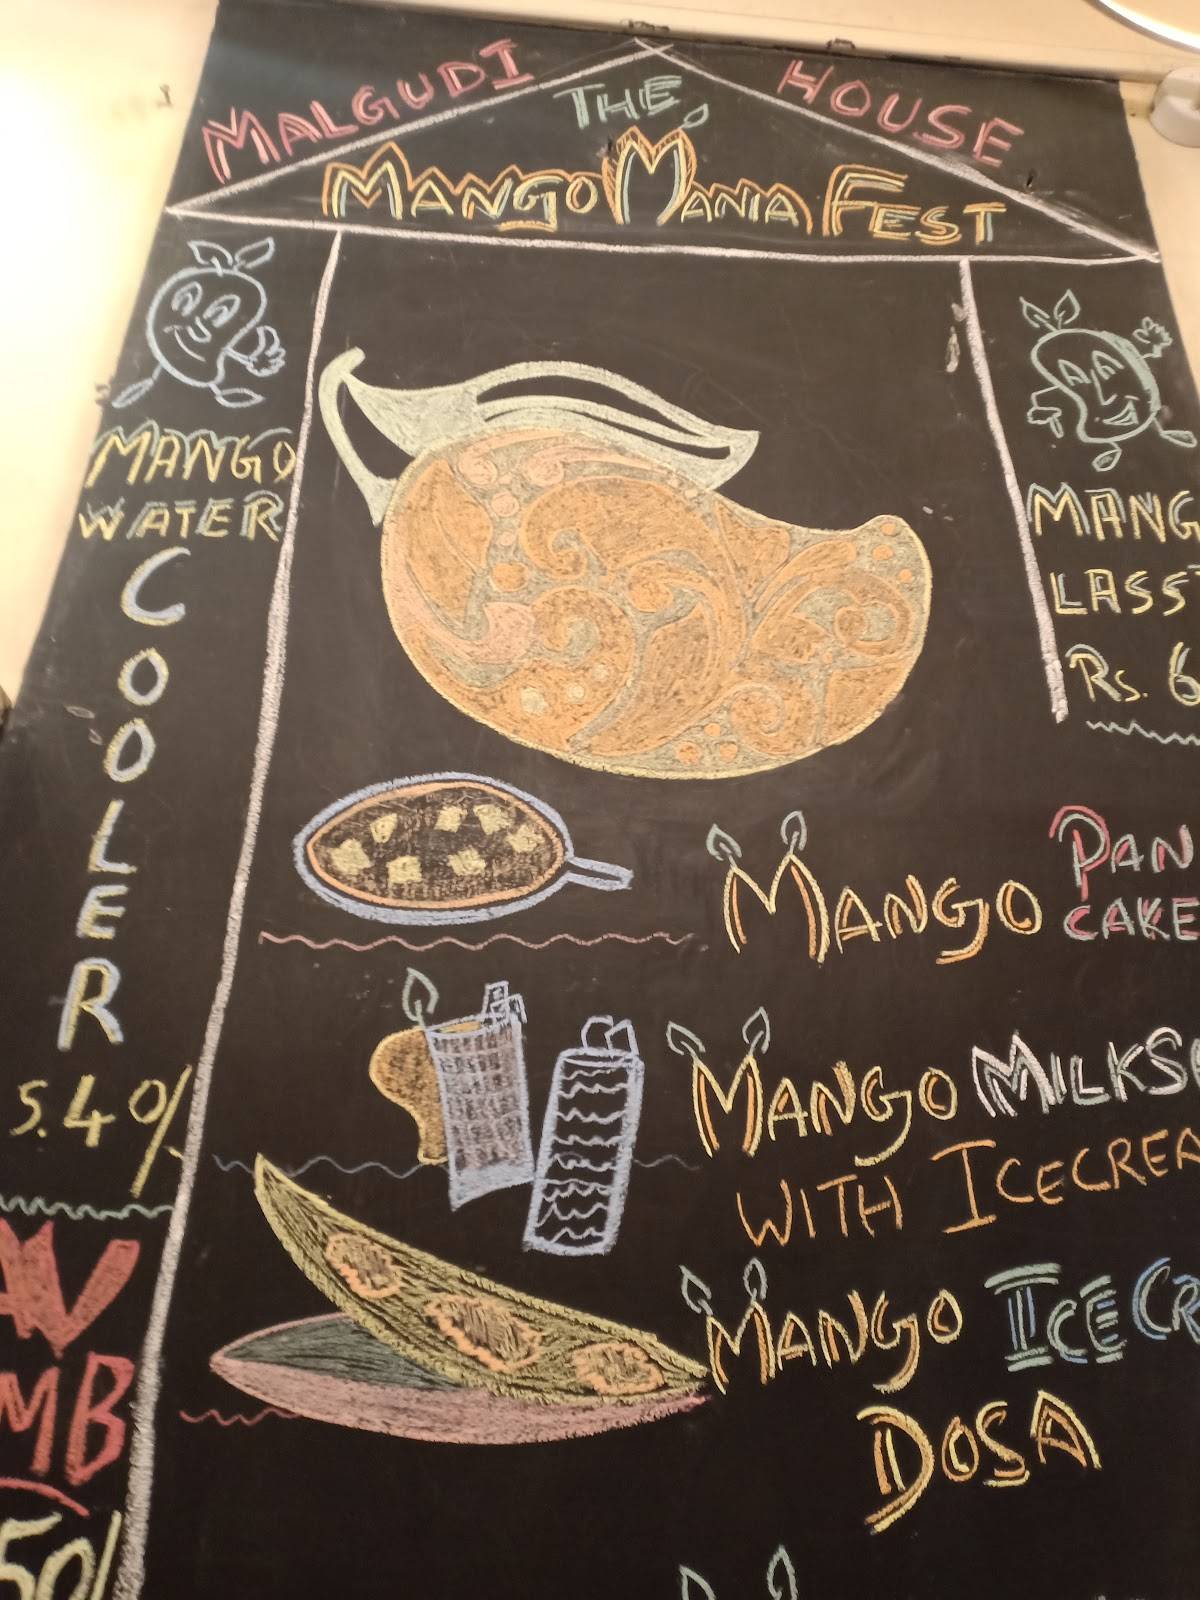 MALGUDI HOUSE
THE
MANGO MANIA FEST
MANGO
WATER
COOLER
S. 40/
MANG
LASS
Rs. 6
MANGO PAN
CAKE
MANGO MILKS
WITH ICECREA
MANGO ICECR
DOSA
MB
50/